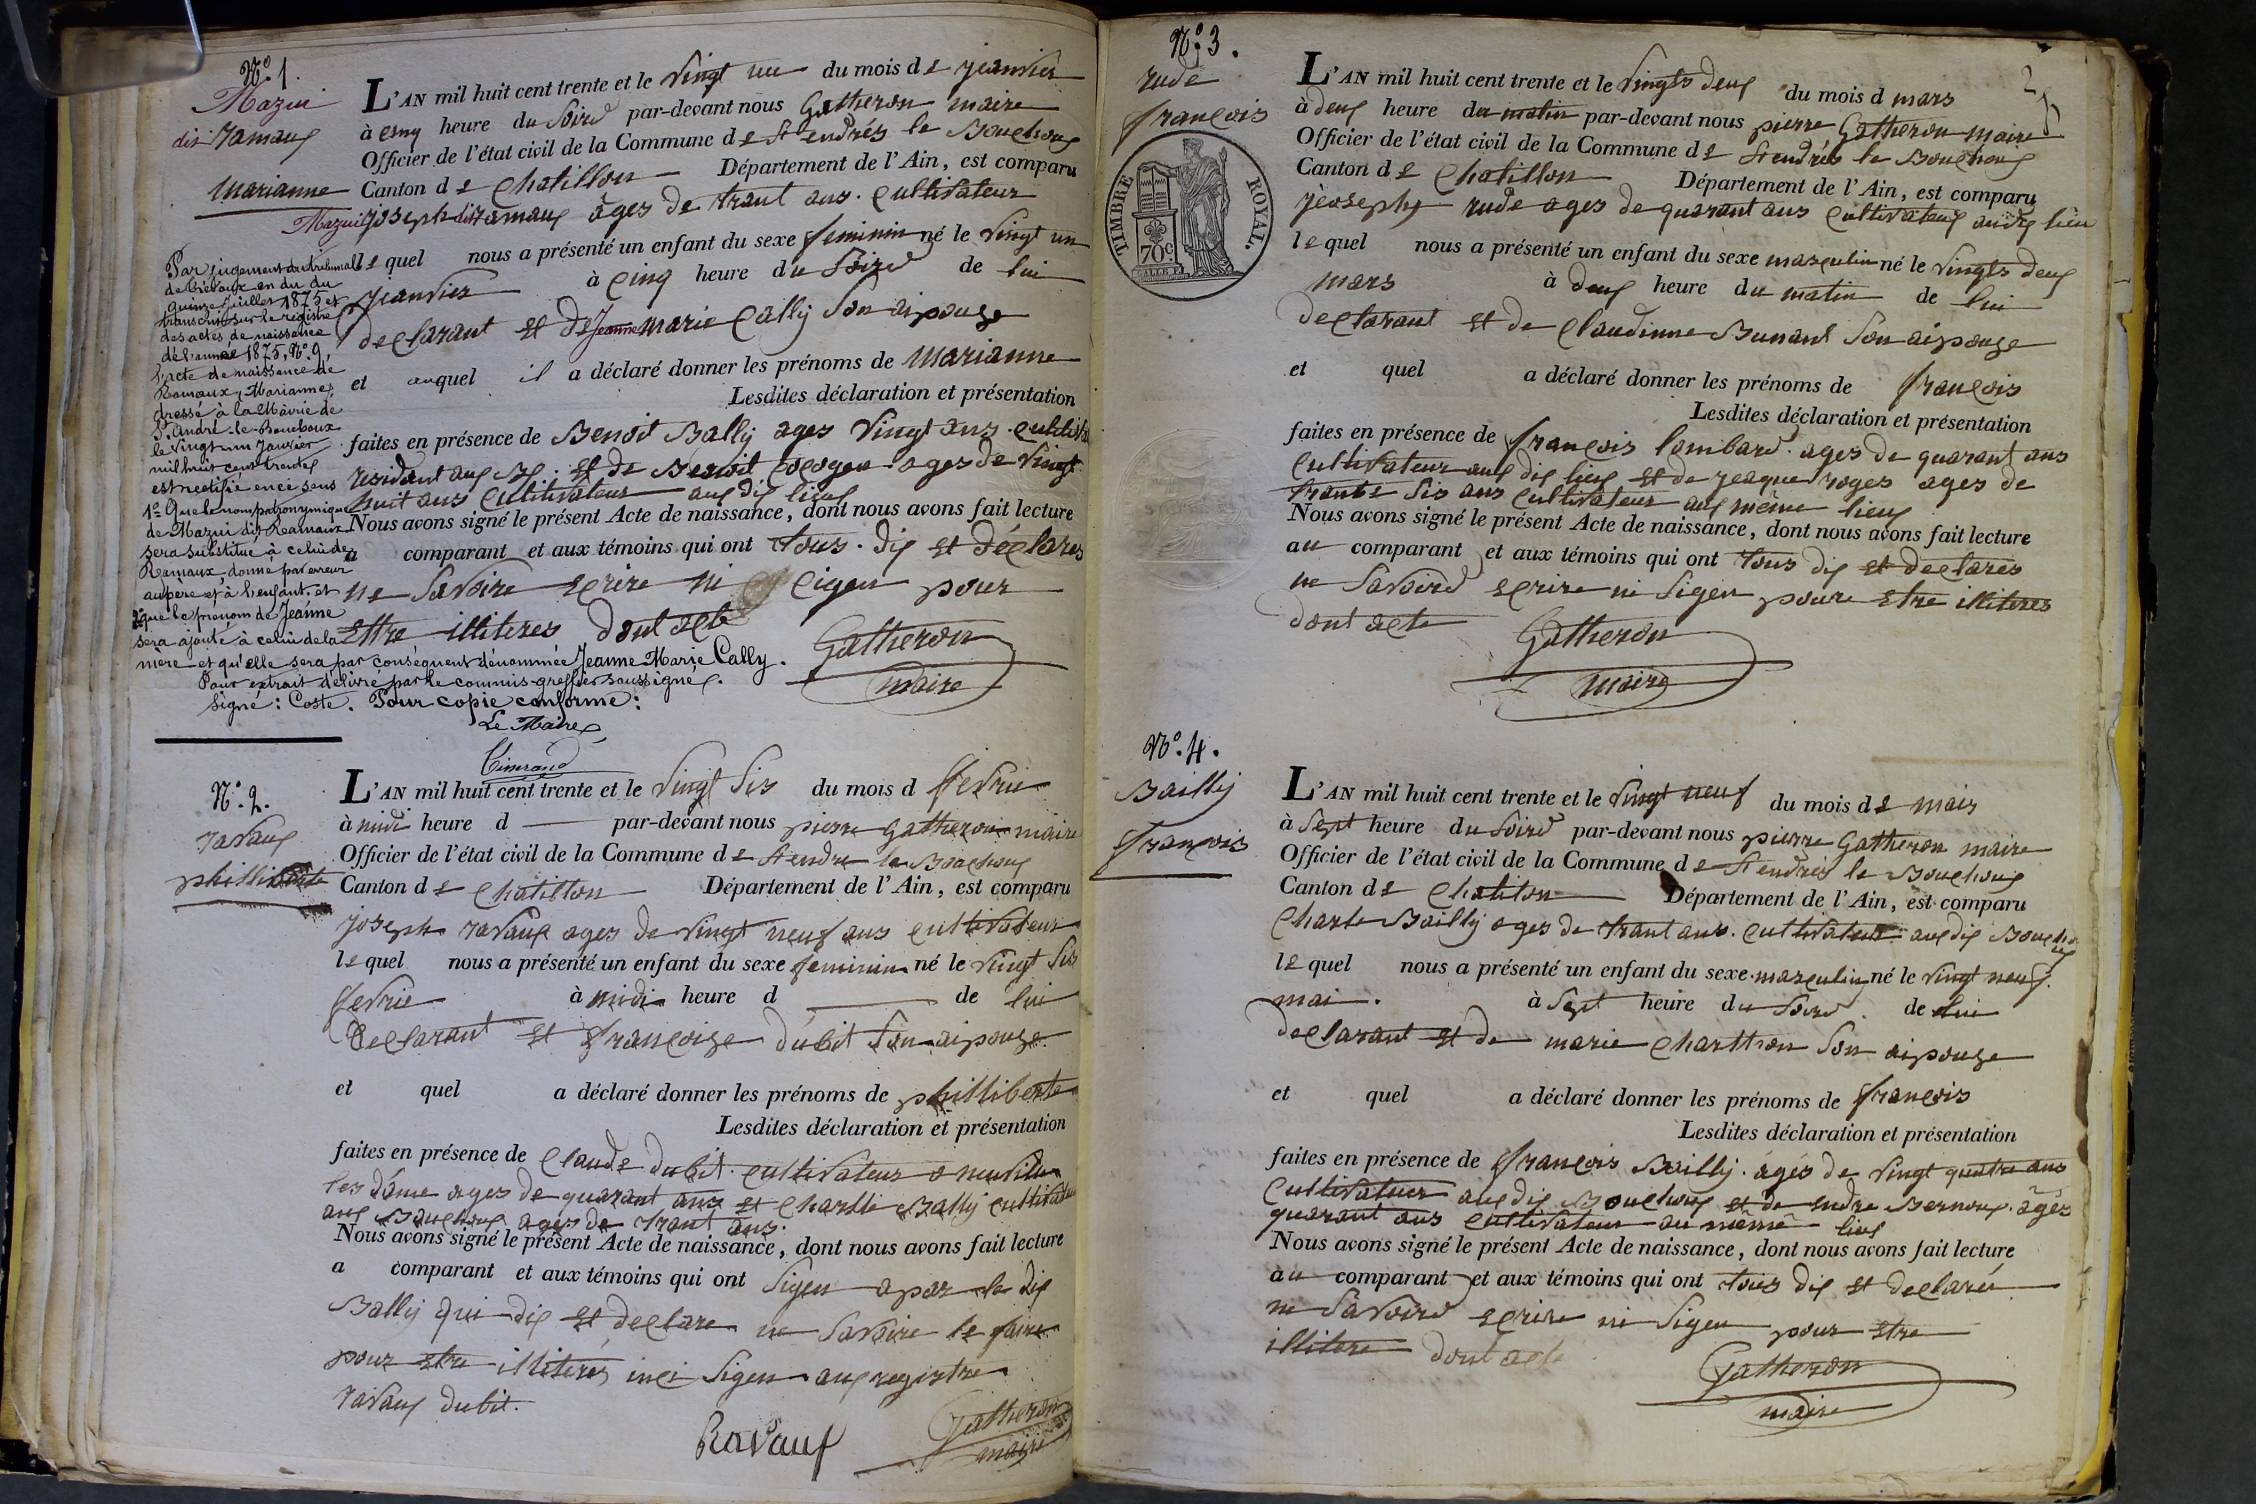 N.° 1.
Mazui
dit ramaux
Marianne
L'AN mil huit cent trente et le vingt un du mois de jeanvier
à cinq heure du soird par-devant nous Gatheron maire
Officier de l'état civil de la Commune de St endrés le Bouchoux
Canton de Chatillon Département de l'Ain, est comparu
Mazui joseph dit ramaux ages de trant ans. cultivateur
lequel nous a présenté un enfant du sexe feminin né le vingt un
jeanvier à cinq heure du soird de lui
declarant et de Jeanne marie Cally son aipouze
et auquel il a déclaré donner les prénoms de marianne
Lesdites déclaration et présentation
faites en présence de Benoit Bally ages vingt ans cultiva
residant aux By. et de Benoit ages de vingt
huit ans cultivateur aux dis lieux
Nous avons signé le présent Acte de naissance, dont nous avons fait lecture
a comparant et aux témoins qui ont tous. dis et déclares
ne savoire ecrire ni cigen pour
ettre illiteres dont acte
Gatheron
maire
Par jugement du tribunal
de Trévoux en du du
quinze juillet 1875 et
transcrit sur le registre
des actes de naissance
de l'année 1875, N.° 9,
l'acte de naissance de
Ramaux, Marianne,
dressé à la Mairie de
St André-le-Bouchoux
le vingt-un Janvier
mil huit cent trente,
est rectifié en ce sens
1.° Que le nom patronymique
de Mazui dit Ramaux
sera substitué à celui de
Ramaux, donné par erreur
au père et à l'enfant, et
2.° que le prénom de Jeanne
sera ajouté à celui de la
mère et qu'elle sera par conséquent dénommée Jeanne Marie Cally.
Pour extrait délivré par le commis-greffier soussigné.
Signé: Coste. Pour copie conforme:
Le Maire,
N.° 2.
ravaux
philliberte
L'AN mil huit cent trente et le vingt sis du mois d fevrie
à midi heure d par-devant nous pierre Gatheron maire
Officier de l'état civil de la Commune de St endre le Bouchoux
Canton de Chatillon Département de l'Ain, est comparu
joseph ravaux ages de vingt neuf ans cultivateur
lequel nous a présenté un enfant du sexe feminin né le vingt sis
fevrie à midi heure d de lui
declarant et françoise dubit son aipouze
et quel a déclaré donner les prénoms de philliberte
Lesdites déclaration et présentation
faites en présence de Claude dubit. cultivateur a neuville
les dame ages de quarant ans et Charlle Bally cultivateur
aux Bouchoux ages de trant ans.
Nous avons signé le présent Acte de naissance, dont nous avons fait lecture
a comparant et aux témoins qui ont sigen apar le dis
Bally qui dis et declare ne savoire le faire
pour etre illiterés inci sigen aux registre
ravaux dubit.
Ravaux
Gatheron
maire
N.° 3.
rude
françois
TIMBRE ROYAL.
70 c
L'AN mil huit cent trente et le vingts deux du mois d mars
à deux heure du matin par-devant nous pierre Gatheron maire
Officier de l'état civil de la Commune de St endrés le Bouchoux
Canton de Chatillon Département de l'Ain, est comparu
jeoseph rude ages de quarant ans cultivateur audis lieu
lequel nous a présenté un enfant du sexe masculin né le vingts deux
mars à deux heure du matin de lui
declarant et de Claudinne Bunant son aipouze
et quel a déclaré donner les prénoms de françois
Lesdites déclaration et présentation
faites en présence de françois lombard. ages de quarant ans
cultivateur aux dis lieu et de jeaque roges ages de
trante sis ans cultivateur aux même lieux
Nous avons signé le présent Acte de naissance, dont nous avons fait lecture
au comparant et aux témoins qui ont tous dis et declares
ne savoird ecrire ni sigen poure etre illiteres
dont acte
Gatheron
maire
N.° 4.
Bailly
françois
L'AN mil huit cent trente et le vingt neuf du mois de mais
à sept heure du soird par-devant nous pierre Gatheron maire
Officier de l'état civil de la Commune de St endrés le Bouchoux
Canton de Chatilon Département de l'Ain, est comparu
Charle Bailly ages de trant ans. cultivateur aux dis Bouchoux
lequel nous a présenté un enfant du sexe masculin né le vingt neuf
mai. à sept heure du soird de lui
declarant et de marie Chartron son aipouze
et quel a déclaré donner les prénoms de françois
Lesdites déclaration et présentation
faites en présence de françois Bailly. ages de vingt quatre ans
cultivateur aux dis Bouchoux et de endre Bernoux. ages
quarant ans cultivateur au même lieux
Nous avons signé le présent Acte de naissance, dont nous avons fait lecture
au comparant et aux témoins qui ont tous dis et declarés
ne savoird ecrire ni sigen pour etre
illitere dont acte
Gatheron
maire